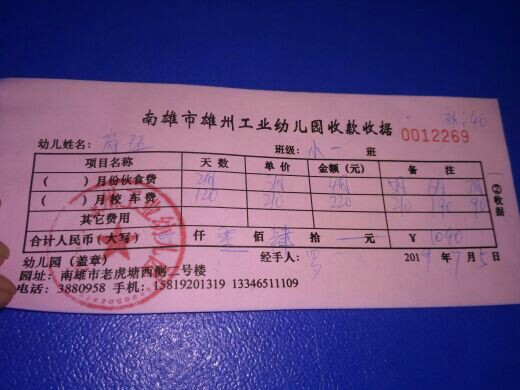 南雄市雄州工业幼儿园收款收据 0012269
幼儿姓名: 班级: 小一 班
项目名称 天数 单价 金额(元) 备注
( )月份伙食费 2月 3月 4月 5月 6月 7月
( )月校车费 120 210 220 210 190 90
其它费用
合计人民币(大写) 仟 零 佰 肆 拾 元 ¥ 1040
②收据
幼儿园(盖章) 经手人: 罗 2019年7月5日
园址: 南雄市老虎塘西侧二号楼
电话: 3880958 手机: 15819201319 13346511109